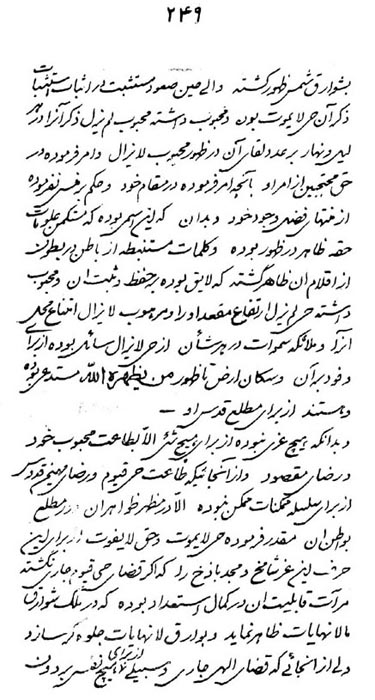 ۲۴۹
بشوارق شمس ظهور گشته والے حین صعود مستثبت در اثبات استثبات
ذکر آن حی لا یموت بوده و محبوب داشته محبوب لم یزل ذکر آنرا در هر
لیل و نهار بر عدد لقای آن در ظهور محبوب لا یزال و امر فرموده در
حق محتجبین از امر او بآنچه امر فرموده در مقام خود و حکم بر هر نفس بوده
از منتهای فضل وجود خود و بدان که این سهمی بوده که متکمن علومات
حقه ظاهر در ظهور بوده و کلمات مستنبطه از باطن در بطون
از اقلام ان ظاهر گشته که لایق بوده بر حفظ و ثبت ان و محبوب
داشته حی لم یزل ارتفاع مقصد او را و مرهوب لا یزال امتناع محل
آنرا و ملائکه سموات در هر شأن از حی لا یزال سائل بوده از برای
وفود بر آن و سکان ارض تا ظهور من یظهره الله مستدعی بوده
و هستند از برای مطلع قدس او —
و بدانکه هیچ عزی نبوده از برای هیچ شیئی الا بطاعت محبوب خود
و رضای مقصود و از آنجائیکه طاعت حی قیوم و رضای مهیمن قدوس
از برای سلسله ممکنات ممکن نبوده الا در مظهر ظواهر ان در مطلع
بواطن ان مقدر فرموده حی لا یموت وحق لا یفوت از برای این
حرف این عز شامخ و مجد باذخ را که اگر قضای حی قیوم جاری نگشته
مرآت قابلیت ان در کمال استعداد بوده که در تلک شوارق
مالا نهایات ظاهر نماید و بوارق لا نهایات جلوه گر سازد
ولے از انجائے که قضای الهی جاری و سبیلے از برای هیچ نفسی بر دون